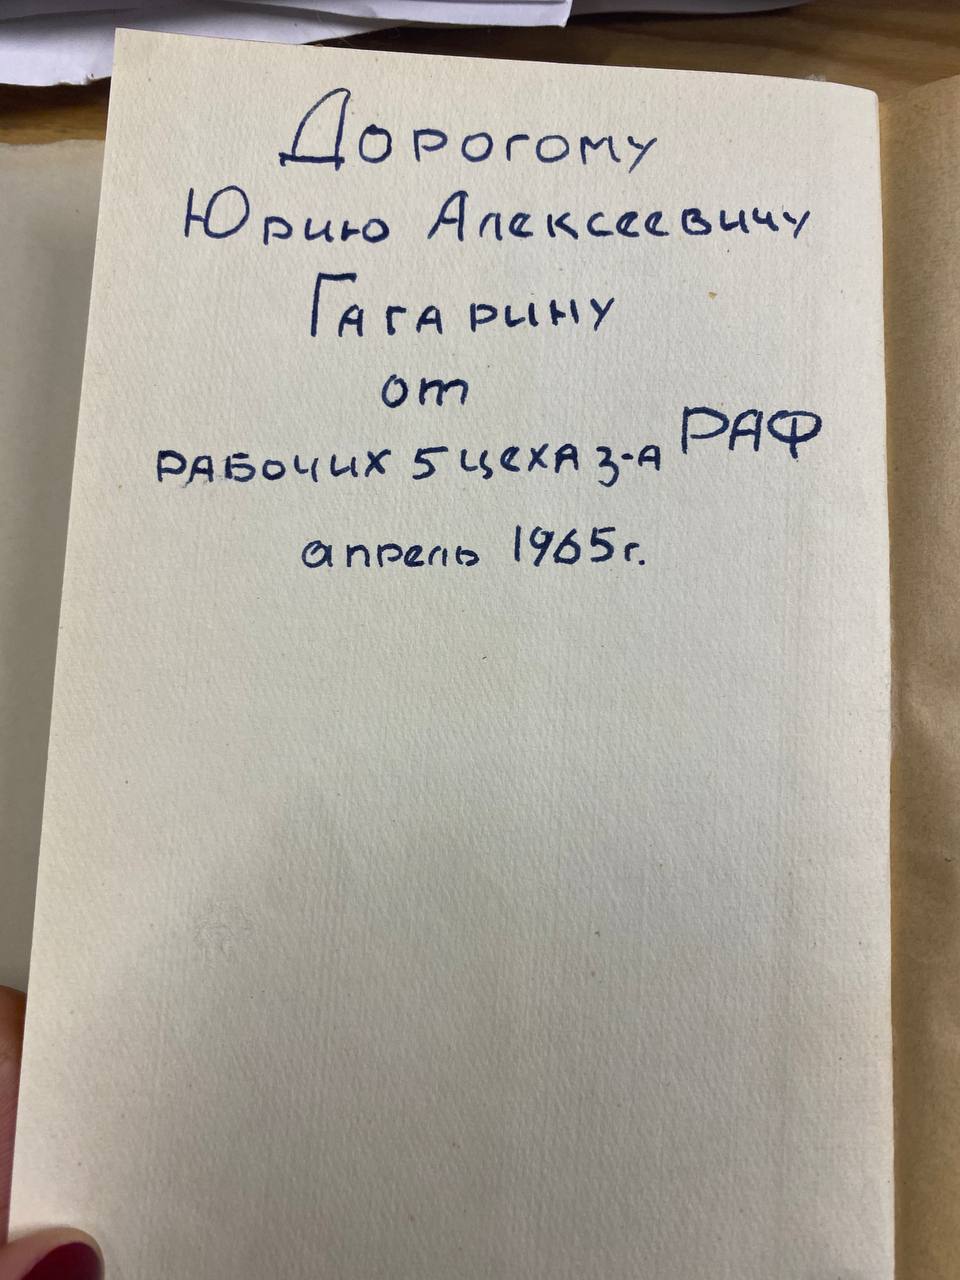 Дорогому
Юрию Алексеевичу
Гагарину
от
рабочих 5 цеха з-а РАФ
апрель 1965г.